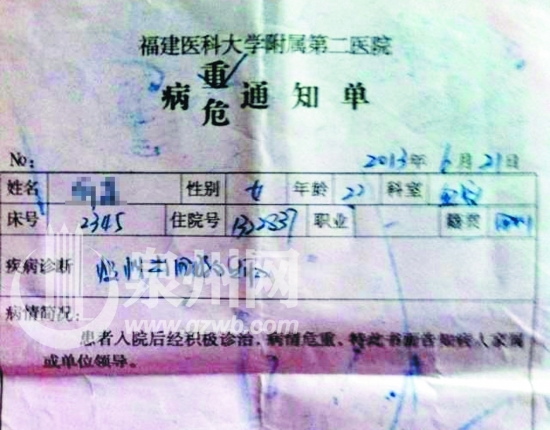 福建医科大学附属第二医院
病重危通知单
No: 2013年6月21日
姓名 性别 女 年龄 22 科室
床号 2345 住院号 1322837 职业 籍贯
疾病诊断 急性
病情简况:
患者入院后经积极诊治，病情危重，特此书面告知病人家属
或单位领导。
泉州网
www.qzwb.com